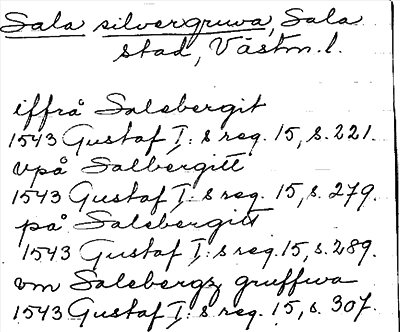 Sala silvergruva, Sala
stad, Västm.l.
iffrå Salebergit
1543 Gustaf I:s reg. 15, s. 221.
vpå Salbergitt
1543 Gustaf I:s reg. 15, s. 279.
på Salebergitt
1543 Gustaf I:s reg. 15, s. 289.
vm Salebergz gruffwa
1543 Gustaf I:s reg. 15, s. 307.